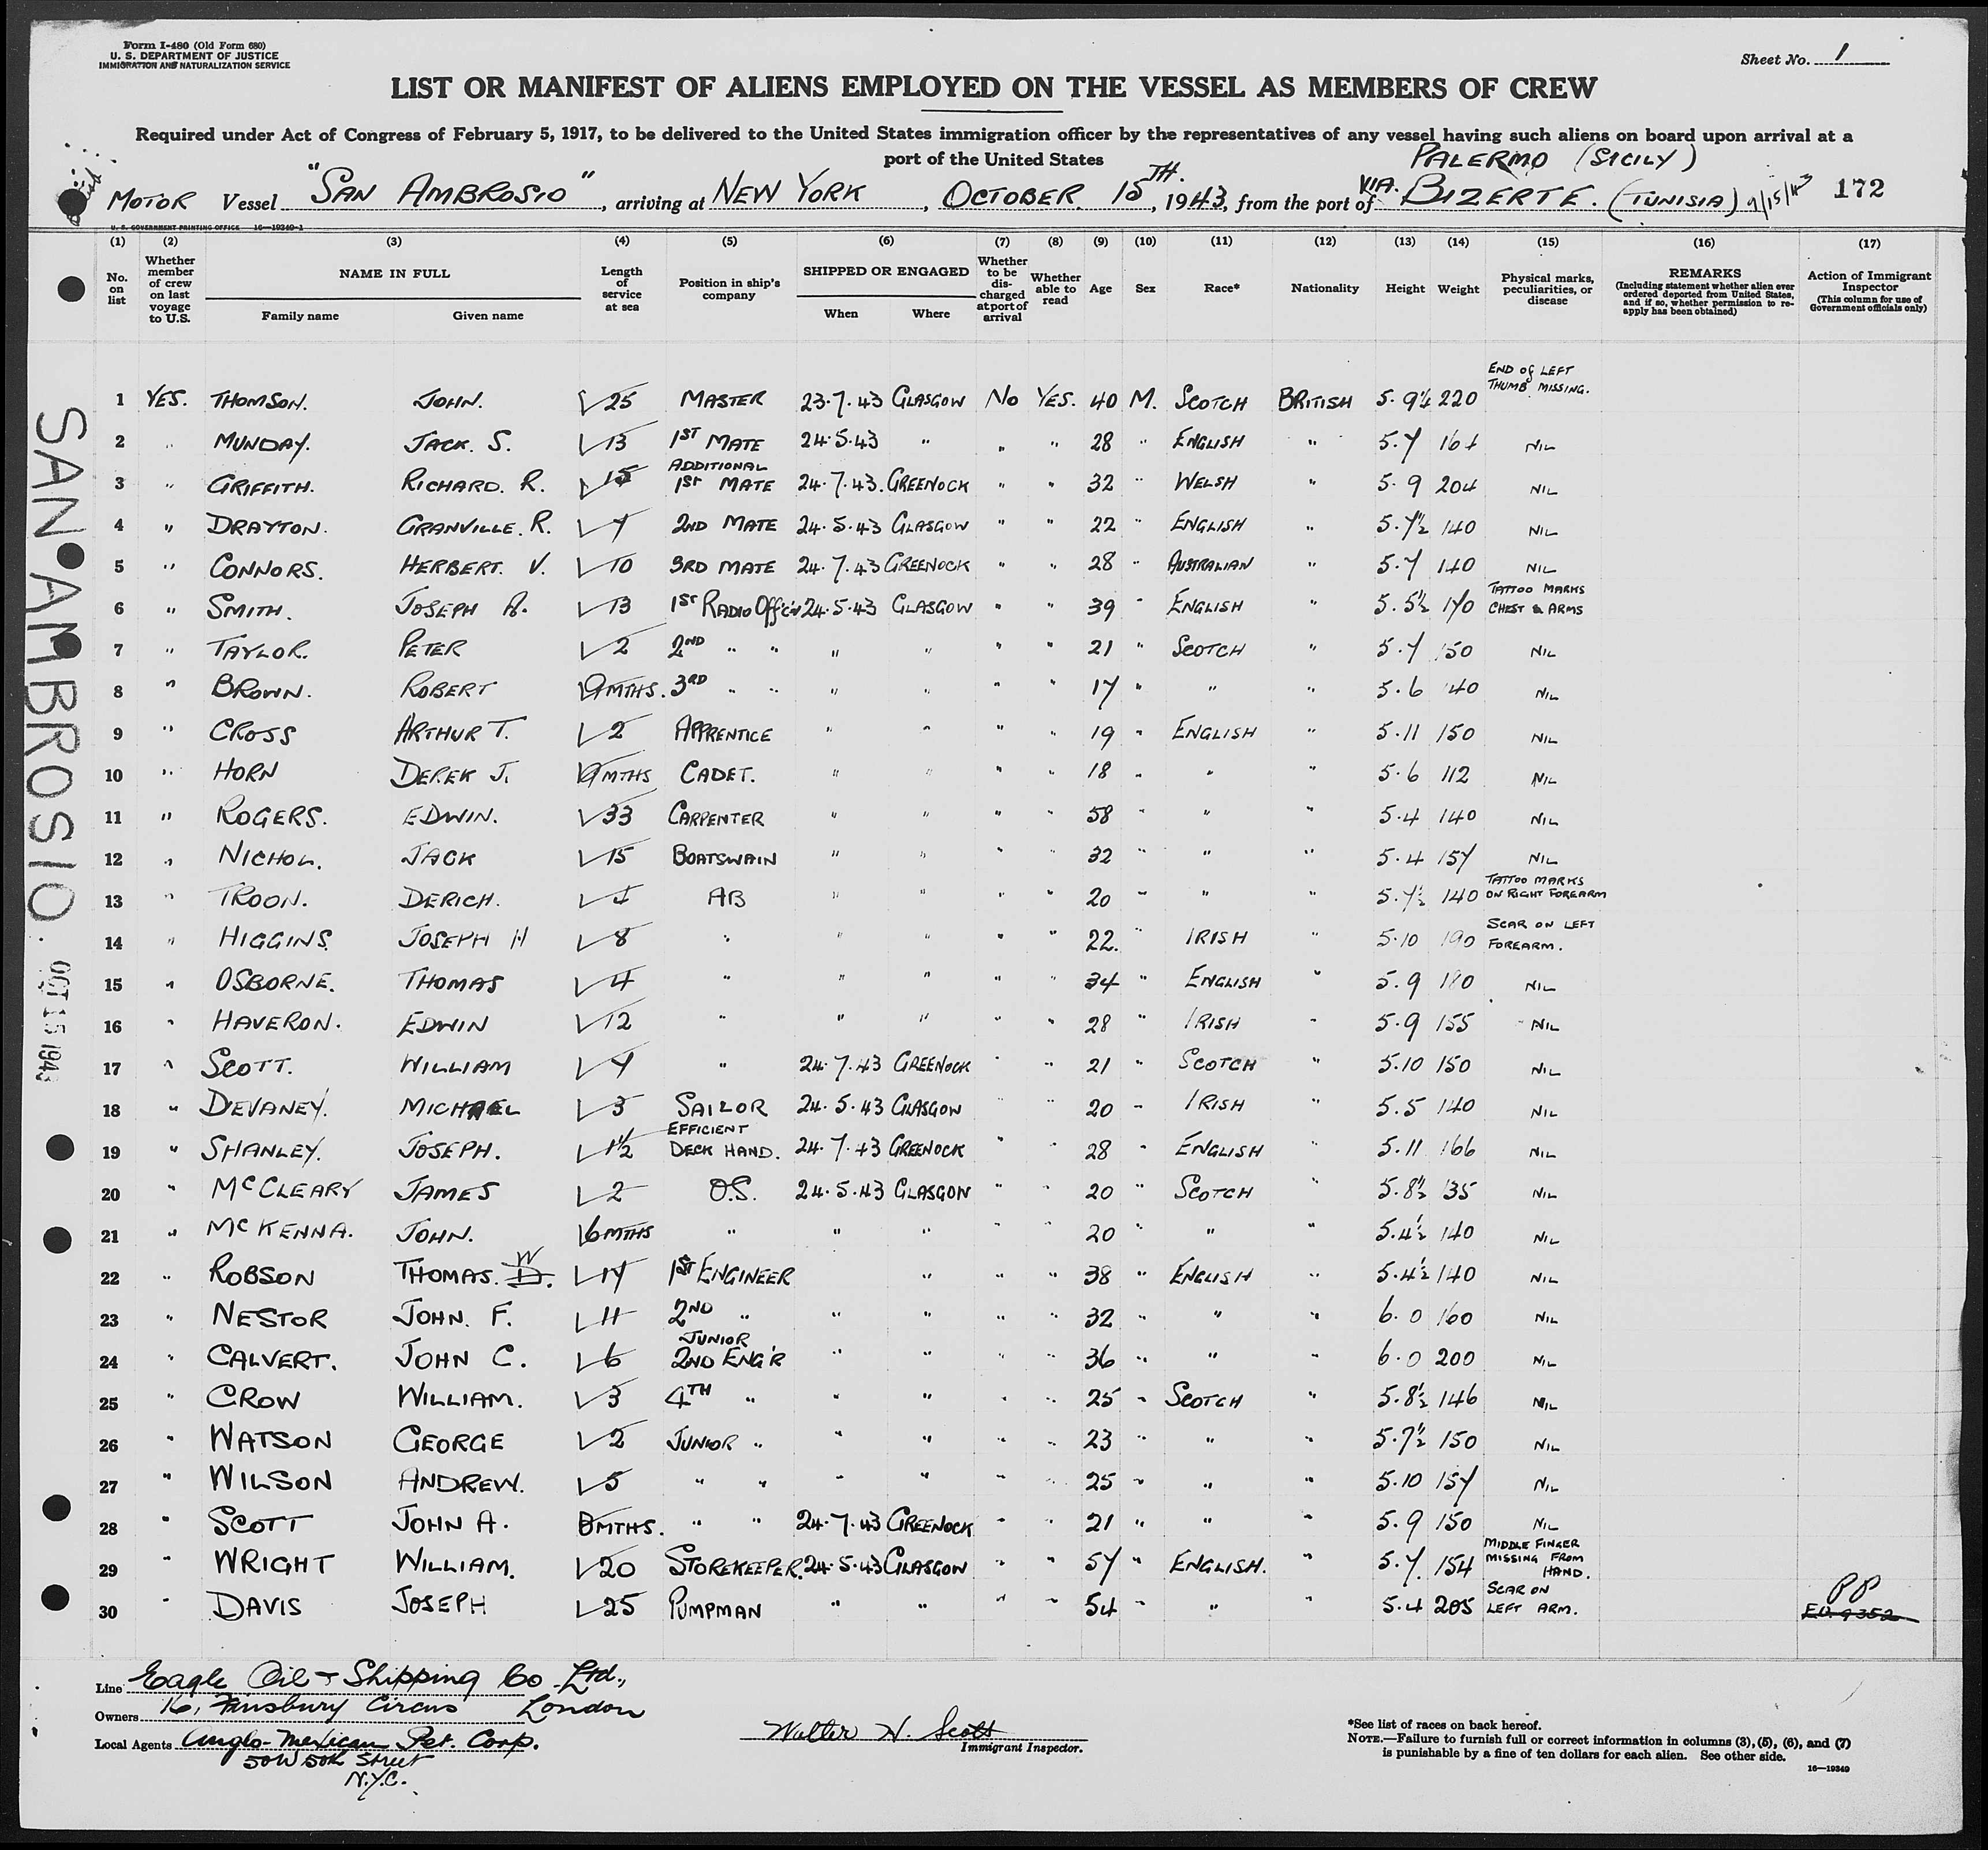 Form I-480 (Old Form 680)
U. S. DEPARTMENT OF JUSTICE
IMMIGRATION AND NATURALIZATION SERVICE
Sheet No. 1
LIST OR MANIFEST OF ALIENS EMPLOYED ON THE VESSEL AS MEMBERS OF CREW
Required under Act of Congress of February 5, 1917, to be delivered to the United States immigration officer by the representatives of any vessel having such aliens on board upon arrival at a
port of the United States
PALERMO (SICILY)
MOTOR Vessel "SAN AMBROSIO", arriving at NEW YORK, OCTOBER. 15TH., 1943, from the port of VIA. BIZERTE. (TUNISIA) 9/15/43 172
U. S. GOVERNMENT PRINTING OFFICE 16—19349-1
(1) (2) (3) (4) (5) (6) (7) (8) (9) (10) (11) (12) (13) (14) (15) (16) (17)
No. on list
Whether member of crew on last voyage to U.S.
NAME IN FULL
Family name Given name
Length of service at sea
Position in ship's company
SHIPPED OR ENGAGED
When Where
Whether to be discharged at port of arrival
Whether able to read
Age Sex Race* Nationality Height Weight
Physical marks, peculiarities, or disease
REMARKS
(Including statement whether alien ever ordered deported from United States, and if so, whether permission to reapply has been obtained)
Action of Immigrant Inspector
(This column for use of Government officials only)
1 YES. THOMSON. JOHN. 25 MASTER 23.7.43 GLASGOW No YES. 40 M. SCOTCH BRITISH 5. 9½ 220 END of LEFT THUMB MISSING.
2 " MUNDAY. JACK. S. 13 1ST MATE 24.5.43 " " " 28 " ENGLISH " 5.7 164 NIL
3 " GRIFFITH. RICHARD. R. 15 ADDITIONAL 1ST MATE 24.7.43. GREENOCK " " 32 " WELSH " 5. 9 204 NIL
4 " DRAYTON. GRANVILLE. R. 7 2ND MATE 24.5.43 GLASGOW " " 22 " ENGLISH " 5.7½ 140 NIL
5 " CONNORS. HERBERT. V. 10 3RD MATE 24.7.43 GREENOCK " " 28 " AUSTRALIAN " 5.7 140 NIL
6 " SMITH. JOSEPH A. 13 1ST RADIO Offic'r 24.5.43 GLASGOW " " 39 " ENGLISH " 5.5½ 170 TATTOO MARKS CHEST & ARMS
7 " TAYLOR. PETER 2 2ND " " " " " " 21 " SCOTCH " 5.7 150 NIL
8 " BROWN. ROBERT 9 MTHS. 3RD " " " " " " 17 " " " 5.6 140 NIL
9 " CROSS ARTHUR T. 2 APPRENTICE " " " " 19 " ENGLISH " 5.11 150 NIL
10 " HORN DEREK J. 9 MTHS CADET. " " " " 18 " " " 5.6 112 NIL
11 " ROGERS. EDWIN. 33 CARPENTER " " " " 58 " " " 5.4 140 NIL
12 " NICHOL. JACK 15 BOATSWAIN " " " " 32 " " " 5.4 157 NIL
13 " TROON. DERICH. AB " " " " 20 " " " 5.7½ 140 TATTOO MARKS ON RIGHT FOREARM
14 " HIGGINS. JOSEPH H 8 " " " " " 22. " IRISH " 5.10 190 SCAR ON LEFT FOREARM.
15 " OSBORNE. THOMAS 4 " " " " " 34 " ENGLISH " 5.9 180 NIL
16 " HAVERON. EDWIN 12 " " " " " 28 " IRISH " 5.9 155 NIL
17 " SCOTT. WILLIAM 4 " 24.7.43 GREENOCK " " 21 " SCOTCH " 5.10 150 NIL
18 " DEVANEY. MICHAEL 3 SAILOR 24.5.43 GLASGOW " " 20 " IRISH " 5.5 140 NIL
19 " SHANLEY. JOSEPH. 1½ EFFICIENT DECK HAND. 24.7.43 GREENOCK " " 28 " ENGLISH " 5.11 166 NIL
20 " McCLEARY JAMES 2 O.S. 24.5.43 GLASGOW " " 20 " SCOTCH " 5.8½ 135 NIL
21 " McKENNA. JOHN. 6 MTHS " " " " " 20 " " " 5.4½ 140 NIL
22 " ROBSON THOMAS. W D. 17 1ST ENGINEER " " " 38 " ENGLISH " 5.4½ 140 NIL
23 " NESTOR JOHN. F. 11 2ND " " " " " 32 " " " 6.0 160 NIL
24 " CALVERT. JOHN C. 6 JUNIOR 2ND ENG'R " " " " 36 " " " 6.0 200 NIL
25 " CROW WILLIAM. 3 4TH " " " " " 25 " SCOTCH " 5.8½ 146 NIL
26 " WATSON GEORGE 2 JUNIOR " " " " " 23 " " " 5.7½ 150 NIL
27 " WILSON ANDREW. 5 " " " " " " 25 " " " 5.10 157 NIL
28 " SCOTT JOHN A. 8 MTHS. " " 24.7.43 GREENOCK " " 21 " " " 5.9 150 NIL
29 " WRIGHT WILLIAM. 20 STOREKEEPER. 24.5.43 GLASGOW " " 57 " ENGLISH. " 5.7. 154 MIDDLE FINGER MISSING FROM HAND.
30 " DAVIS JOSEPH 25 PUMPMAN " " " " 54 " " " 5.4 205 SCAR ON LEFT ARM. PP
SAN AMBROSIO. OCT 15 1943
Line Eagle Oil & Shipping Co. Ltd.,
Owners 16, Finsbury Circus London
Local Agents Anglo-Mexican Pet. Corp.
50 W 50th Street
N.Y.C.
Walter H. Scott
Immigrant Inspector.
*See list of races on back hereof.
NOTE.—Failure to furnish full or correct information in columns (3), (5), (6), and (7)
is punishable by a fine of ten dollars for each alien. See other side.
16—19349